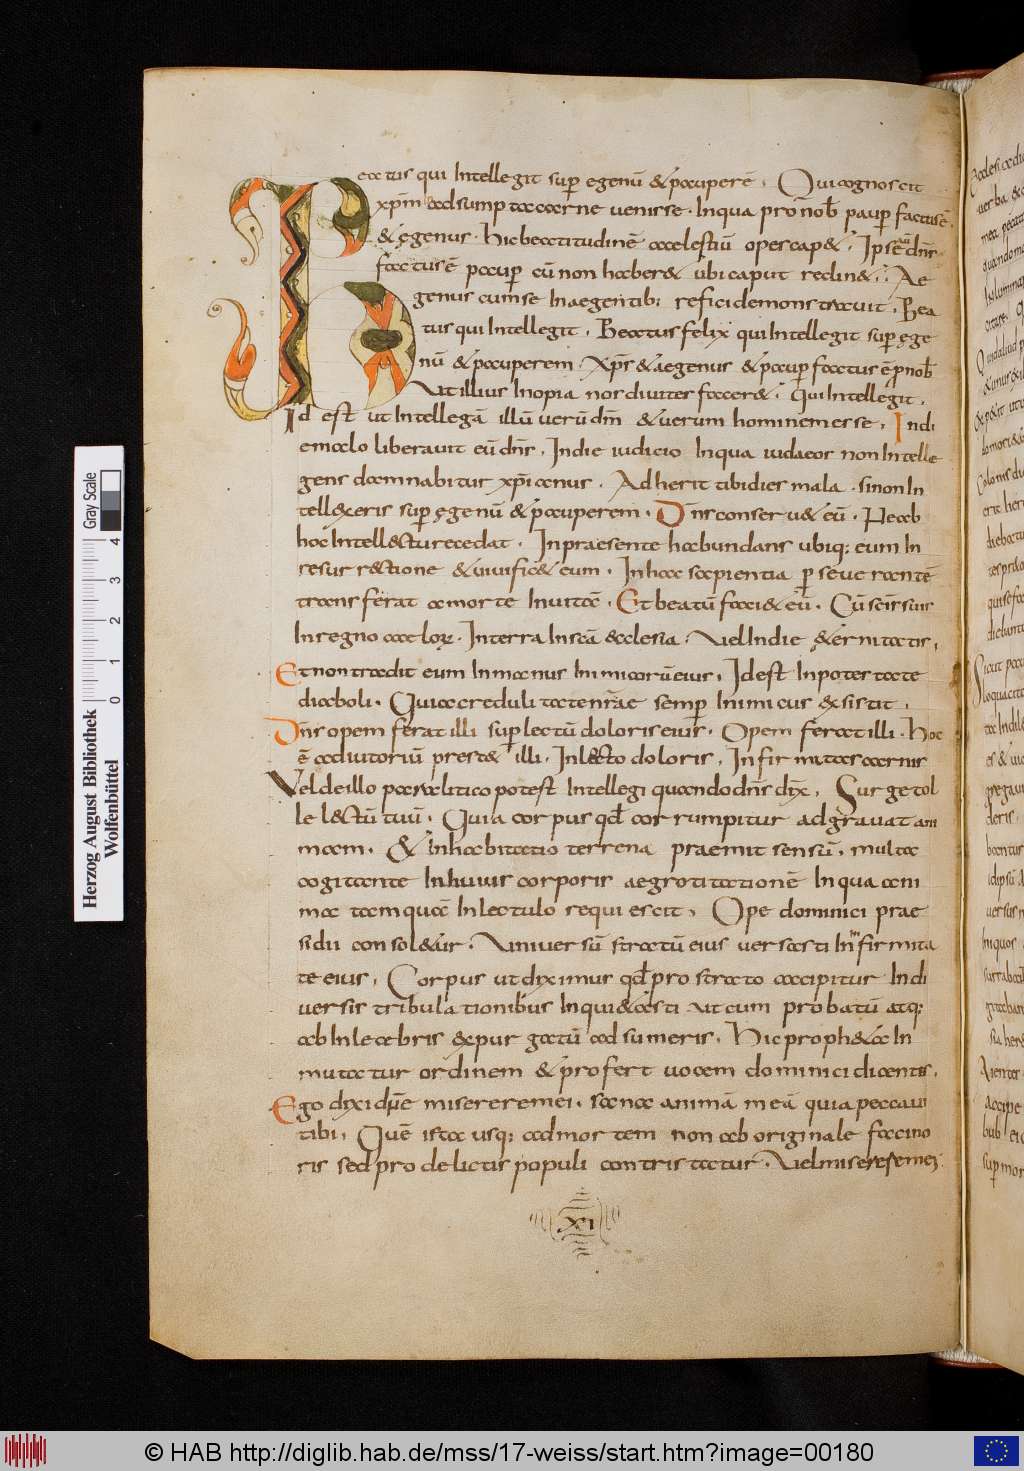 Beatus qui intellegit sup egenū & pauperē. Qui cognoscit
xpm ad sumptaccarne uenisse. In qua pro nob paup factus ē
& egenus. Hic beatitudinē caelestiū opere cap&. Ipse aū dnr
factus ē paup cū non haber& ubi caput reclin&. Ae
genus cum se in aegentib; refici demonstrauit. Bea
tus qui intellegit. Beatus felix qui intellegit sup ege
nū & pauperem. Xps & aegenus & paup factus ē p nob
Ut illius inopia nos diuites facer&. Qui intellegit.
Id est ut intellegā illū uerū dm & uerum hominem esse. In di
e malo liberauit eū dns. In die iudicio in qua iudaeos non intelle
gens damnabitur xpianus. Adherit tibi dies mala. si non in
tellexeris sup egenū & pauperem. Dns conseru& eū. Ne ab
hoc intellectu recedat. In praesente habundans ubiq; eum in
resurrectione & uiuific& eum. In hac sapientia pseuerantē
transferat a morte in uitā. Et beatū faci& eū. Cū scīs suis
In regno caelor. In terra in scā ecclesia. Uel in die &ernitatis.
Et non tradit eum in manus inimicorū eius. Id est in potestate
diaboli. Qui a credulitate nrae semp inimicus & sistit.
Dns opem ferat illi sup lectū doloris eius. Opem ferat illi. Hoc
ē adiutoriū prest& illi. In lecto doloris. In firmitas carnis
Vel de illo paralitico potest intellegi quando dns dix. Surge tol
le lectū tuū. Quia corpus qd corrumpitur adgrauat ani
mam. & inhabitatio terrena praemit sensū. multa
cogitante in huius corporis aegrotationē in qua ani
ma tam qua in lectulo requiescit. Ope dominici prae
sidii consol&ur. Uniuersū stratū eius uersasti in infirmita
te eius. Corpus ut diximus qd pro strato accipitur in di
uersis tribulationibus inqui&asti ut cum probatū atq;
ab inlecebris expurgatū adsumeris. Hic proph&a in
mutatur ordinem & profert uocem dominici dicentis.
Ego dixi dne miserere mei. sana animā meā quia peccaui
tibi. Quē ista usq; ad mortem non ab originale facino
ris sed pro delictis populi contristatur. Vel miserere mei
xi
Herzog August Bibliothek
Wolfenbüttel
Gray Scale
0 1 2 3 4
© HAB http://diglib.hab.de/mss/17-weiss/start.htm?image=00180